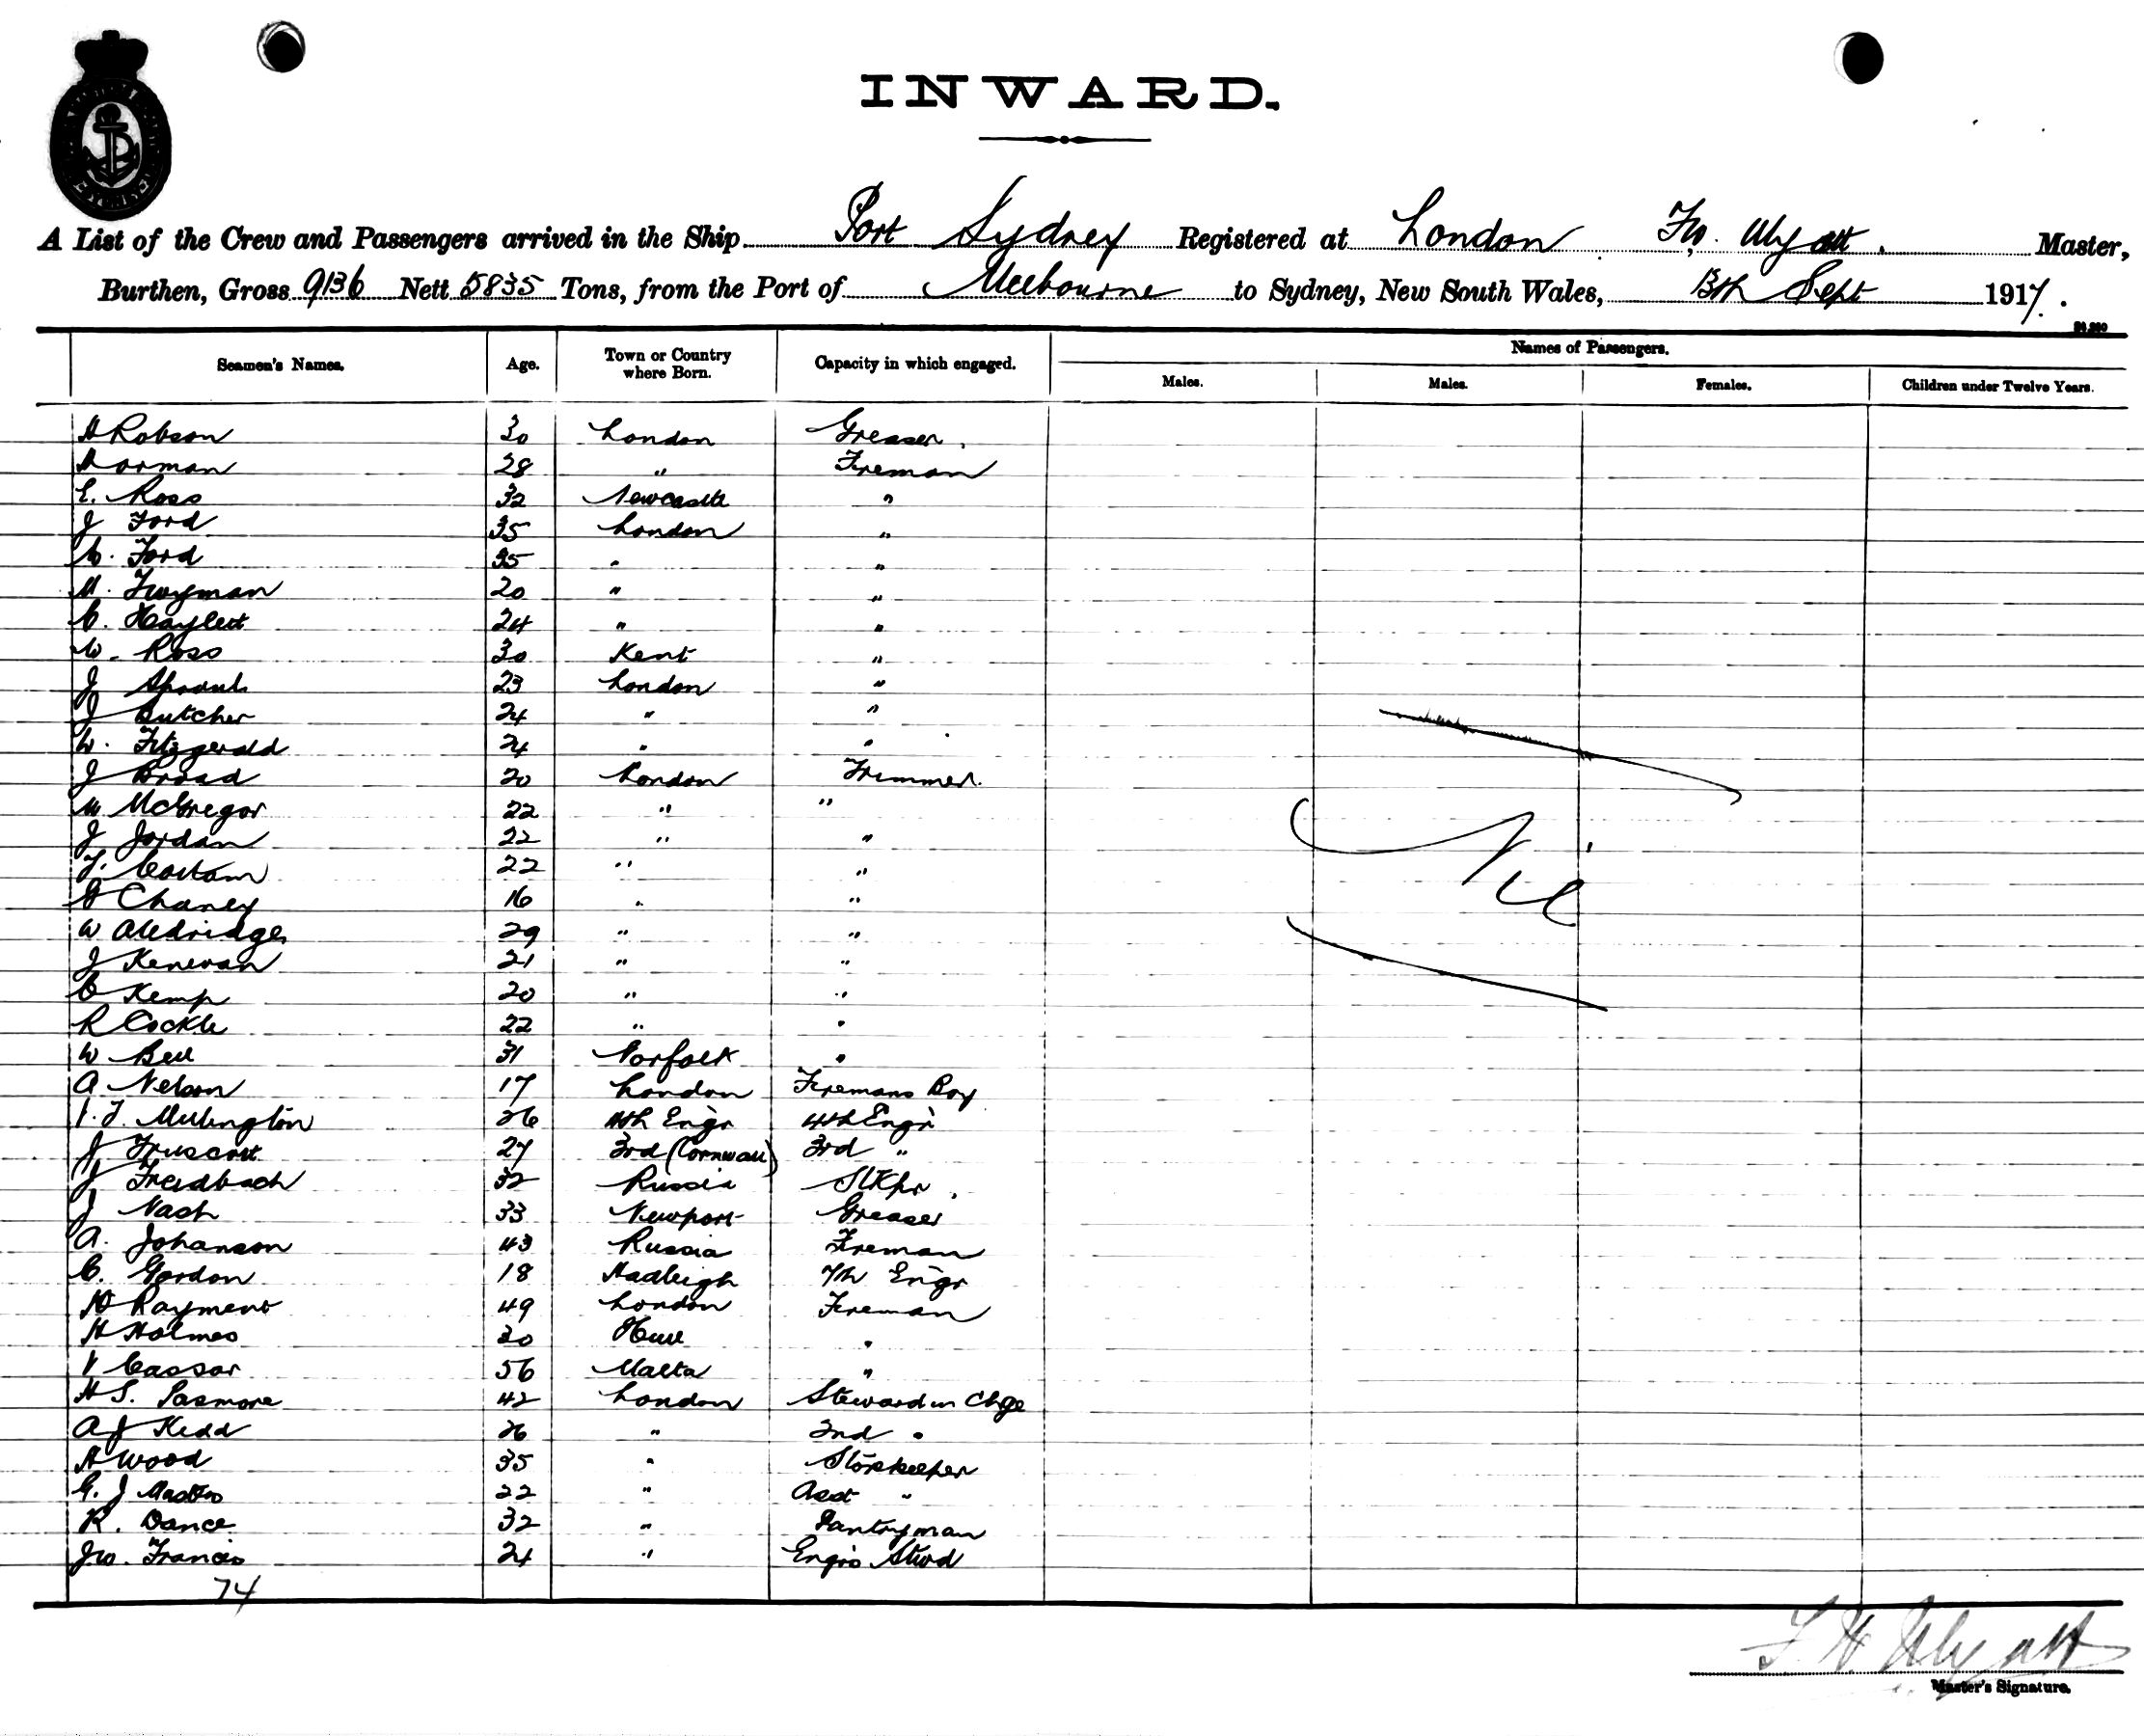 INWARD.
A List of the Crew and Passengers arrived in the Ship Port Sydney Registered at London Fw. Wyatt. Master,
Burthen, Gross 9136 Nett 5835 Tons, from the Port of Melbourne to Sydney, New South Wales, 13th Sept 1917.
Seamen's Names. Age. Town or Country where Born. Capacity in which engaged. Names of Passengers.
Males. Males. Females. Children under Twelve Years.
H Robson 30 London Greaser.
Norman 28 " Fireman
E. Ross 32 Newcastle "
J Ford 35 London "
C. Ford 35 " "
M. Twyman 20 " "
C. Haylett 24 " "
W. Ross 30 Kent "
J 23 London "
J Butcher 24 " "
W. Fitzgerald 24 " "
J Broad 20 London Trimmer.
W McGregor 22 " "
J Jordan 22 " "
T. 22 " "
G Chaney 16 " "
W Alldridge 29 " "
J Kenevan 21 " "
C Kemp 20 " "
R Cockle 22 " "
W Bell 31 Norfolk "
A Nelson 17 London Firemans Boy
V. T. Millington 26 4th Engr 4th Engr
J Truscott 27 3rd (Cornwall) 3rd "
J 32 Russia StKpr.
J Nash 33 Newport Greaser
A. Johanson 43 Russia Fireman
C. Gordon 18 Hadleigh 7th Engr
H Rayment 49 London Fireman
H Holmes 30 Hull "
V Cassar 56 Malta "
H S. Pasmore 42 London Steward in Chge
A J Kedd 26 " 2nd "
A Wood 35 " Storekeeper
G. J Masters 22 " Asst "
R. Dance 32 " Pantryman
Jw. Francis 24 " Engrs Stwd
Nil
74
F W Wyatt
Master's Signature.